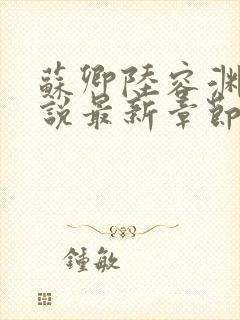 蘇卿陸容淵
說最新章節
鍾敏